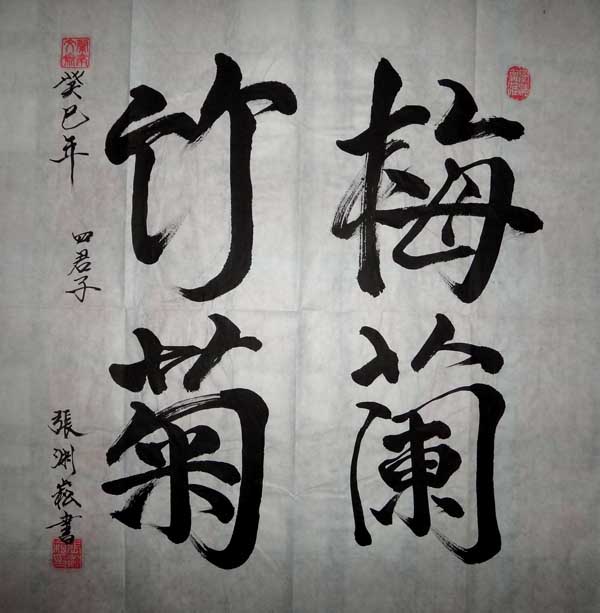 梅蘭
竹菊
癸巳年 四君子 張渊崧書